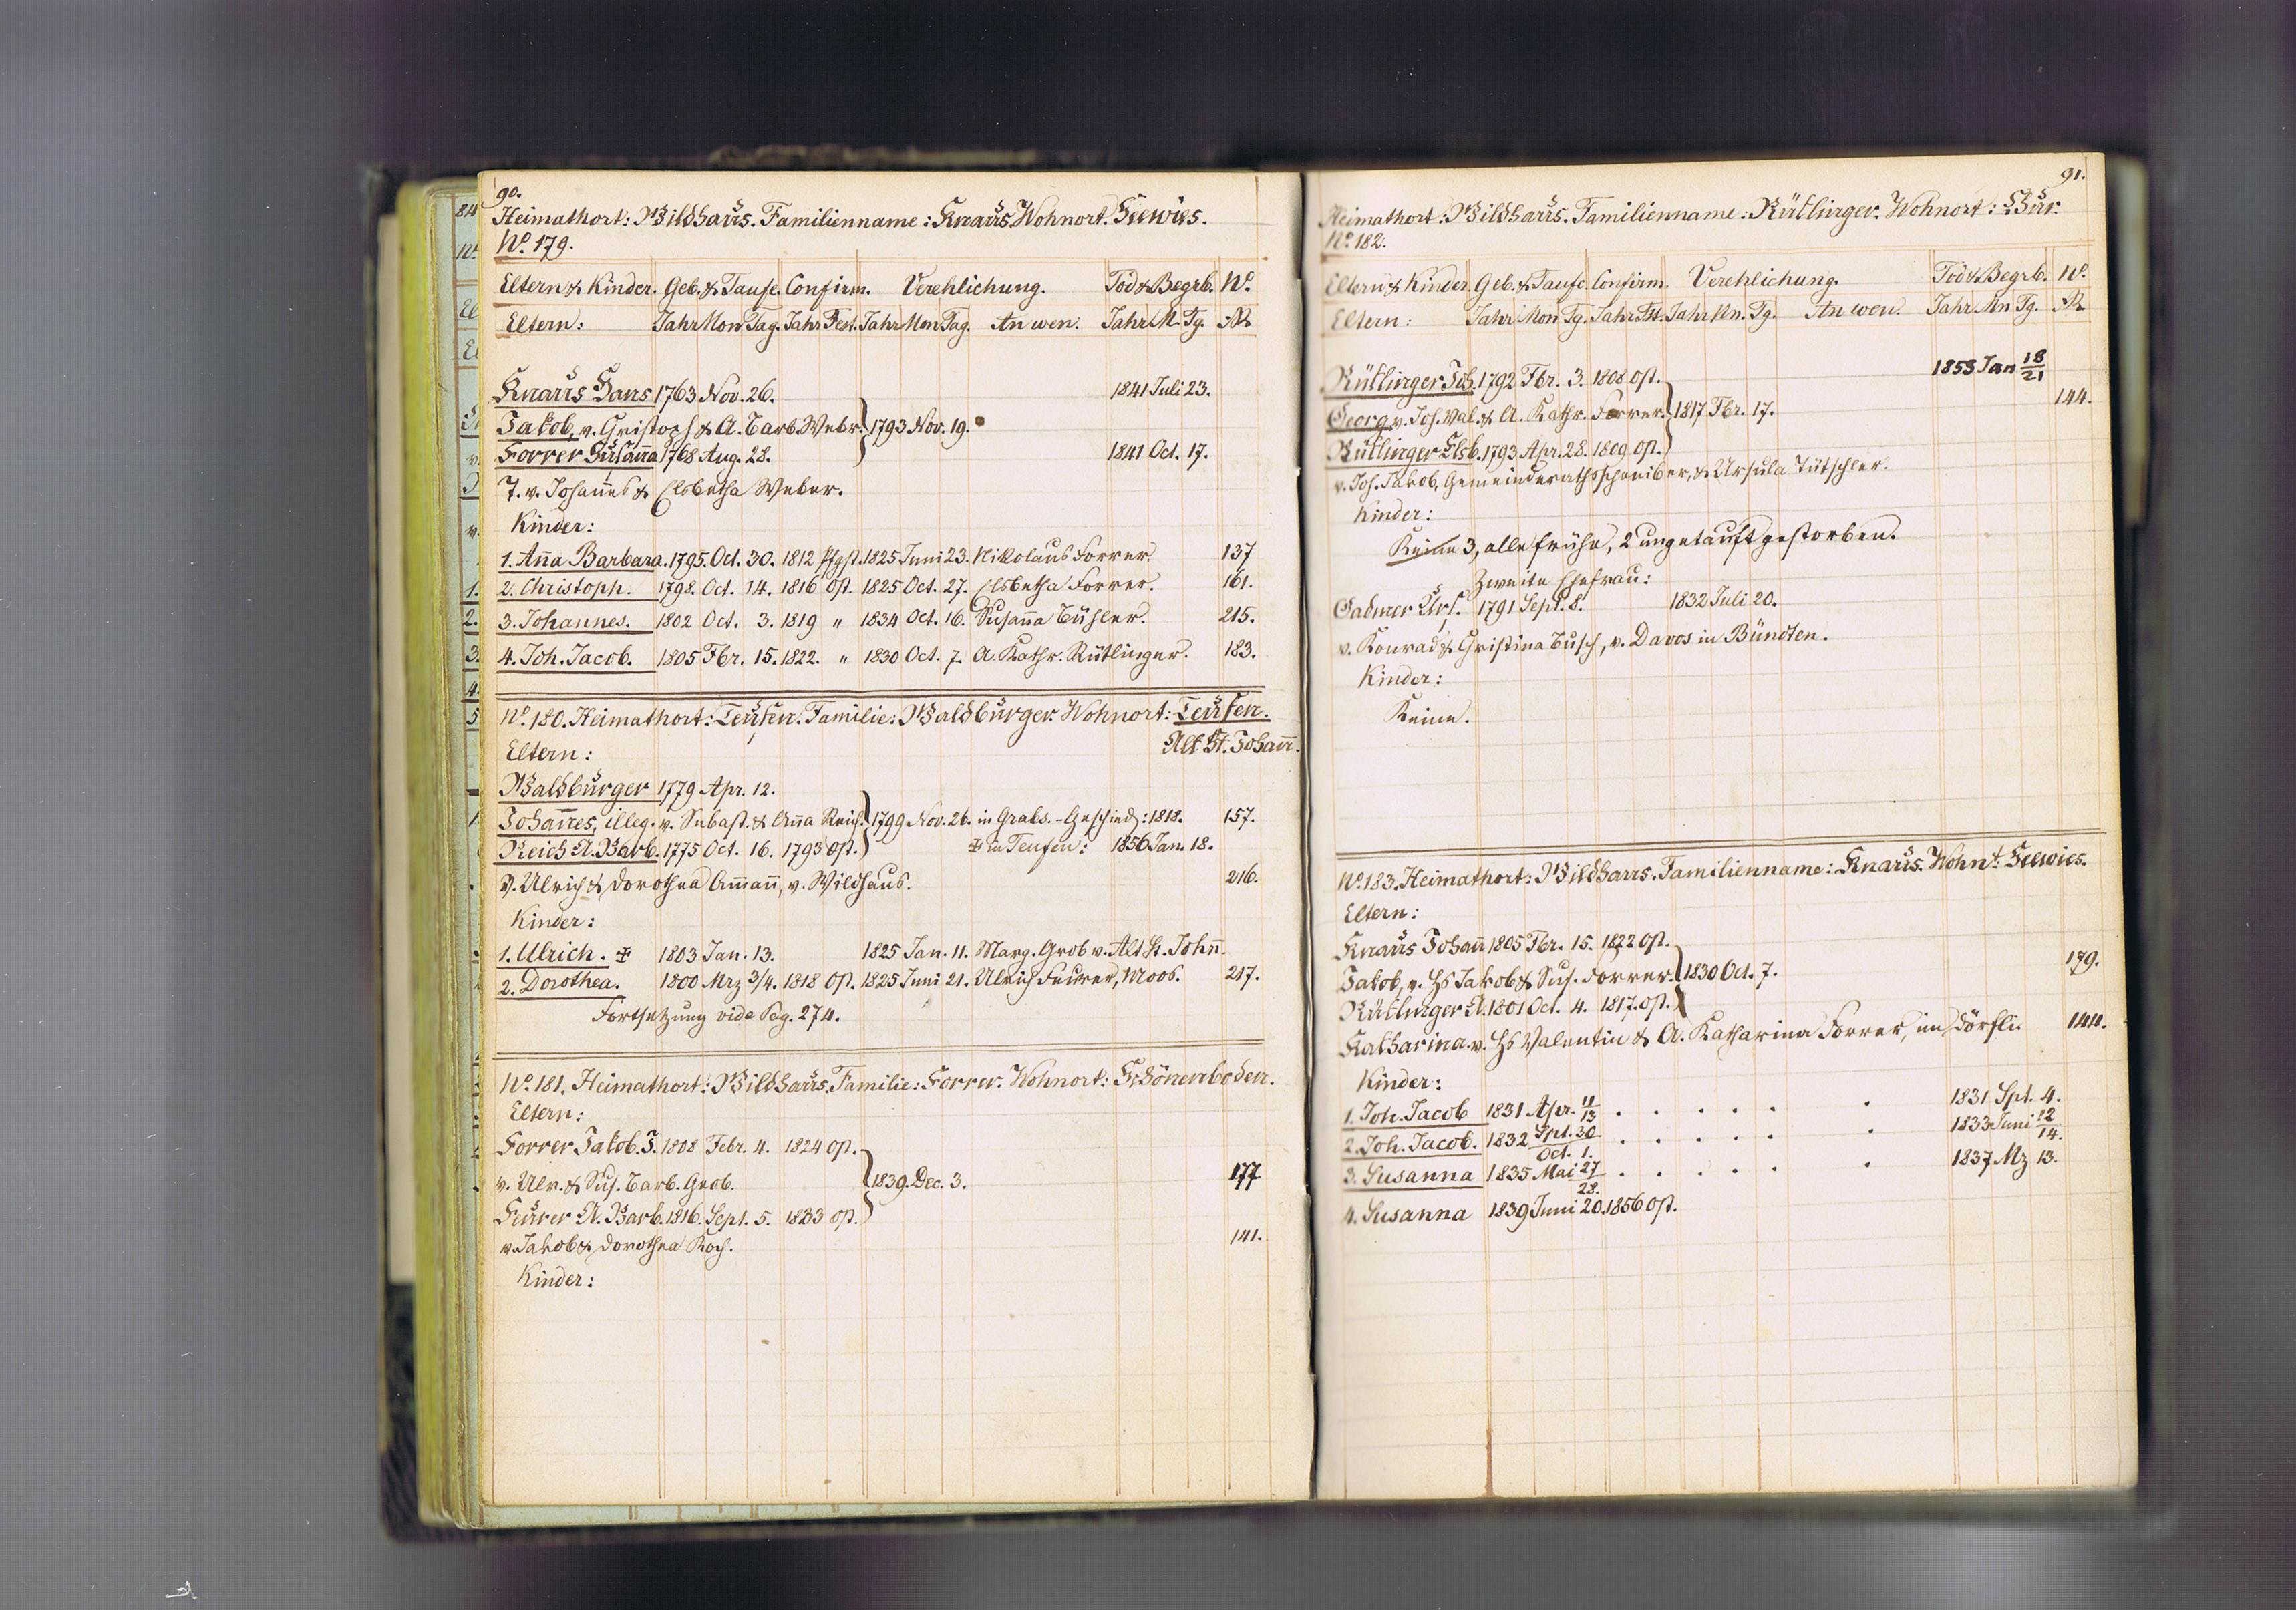 90.
Heimathort: Wildhaus. Familienname: Knaus. Wohnort: Seewies.
No. 179.
Eltern & Kinder. Geb. & Taufe. Confirm. Verehlichung. Tod & Begrb. No.
Eltern: Jahr Mon Tag. Jahr Fest. Jahr Mon Tag. An wen. Jahr M. Tg.
Knaus Hans 1763 Nov. 26. 1841 Juli 23.
Jakob, v. Christoph & A. Barb. Weber. 1793 Nov. 19.
Forrer Susanna 1768 Aug. 28. 1841 Oct. 17.
T. v. Johannes & Elsbetha Weber.
Kinder:
1. Anna Barbara. 1795. Oct. 30. 1812 Pfgst. 1825 Juni 23. Nikolaus Forrer. 137
2. Christoph. 1798. Oct. 14. 1816 Ost. 1825 Oct. 27. Elsbetha Forrer. 161.
3. Johannes. 1802 Oct. 3. 1819 " 1834 Oct. 16. Susanna Bühler. 215.
4. Joh. Jacob. 1805 Fbr. 15. 1822. " 1830 Oct. 7. A. Kathr. Rütlinger. 183.
No. 180. Heimathort: Teufen. Familie: Waldburger. Wohnort: Teufen.
Eltern: Alt St. Johann.
Waldburger 1779 Apr. 12.
Johannes, illeg. v. Sebast. & Anna Reich. 1799 Nov. 26. in Grabs. - Geschied: 1818. 157.
Reich A. Barb. 1775 Oct. 16. 1793 Ost. in Teufen: 1856 Jan. 18.
v. Ulrich & Dorothea Amann, v. Wildhaus. 216.
Kinder:
1. Ulrich. 1803 Jan. 13. 1825 Jan. 11. Marg. Grob v. Alt St. John.
2. Dorothea. 1800 Mrz 3/4. 1818 Ost. 1825 Juni 21. Ulrich Feurer, Moos. 217.
Fortsetzung vide Pag. 274.
No. 181. Heimathort: Wildhaus. Familie: Forrer. Wohnort: Schönenboden.
Eltern:
Forrer Jakob. J. 1808 Febr. 4. 1824 Ost.
v. Ulr. & Sus. Barb. Grob. 1839. Dec. 3. 177
Furer A. Barb. 1816. Sept. 5. 1833 Ost.
v. Jakob & Dorothea Koch. 141.
Kinder:
91.
Heimathort: Wildhaus. Familienname: Rütlinger. Wohnort: Bur.
No. 182.
Eltern & Kinder. Geb. & Taufe. Confirm. Verehlichung. Tod & Begrb. No.
Eltern: Jahr Mon Tg. Jahr Fst. Jahr Mn. Tg. An wen. Jahr Mn Tg.
Rütlinger Joh. 1792 Fbr. 3. 1808 Ost. 1853 Jan 18/21
Georg v. Joh. Val. & A. Kathr. Forrer. 1817 Fbr. 17. 144.
Rütlinger Elsb. 1793 Apr. 28. 1809 Ost.
v. Joh. Jakob, Gemeinderathsschreiber, & Ursula Bütschler.
Kinder:
Keine 3, alle frühe, 2 ungetauft gestorben.
Zweite Ehefrau:
Gadmer Urs. 1791 Sept. 8. 1832 Juli 20.
v. Konrad & Christina Busch, v. Davos in Bündten.
Kinder:
Keine.
No. 183. Heimathort: Wildhaus. Familienname: Knaus. Wohnt. Seewies.
Eltern:
Knaus Johann 1805 Fbr. 15. 1822 Ost.
Jakob, v. Hs Jakob & Sus. Forrer. 1830 Oct. 7. 179.
Rütlinger A. 1801 Oct. 4. 1817. Ost.
Katharina v. Hs Valentin & A. Katharina Forrer, im Dörfli 144.
Kinder:
1. Joh. Jacob 1831 Apr. 11/13 . . . . . . 1831 Spt. 4.
2. Joh. Jacob. 1832 Spt. 30/Oct. 1. . . . . . . 1833 Juni 12/14.
3. Susanna 1835 Mai 27/28. . . . . . . 1837 Mz 13.
4. Susanna 1839 Juni 20. 1856 Ost.